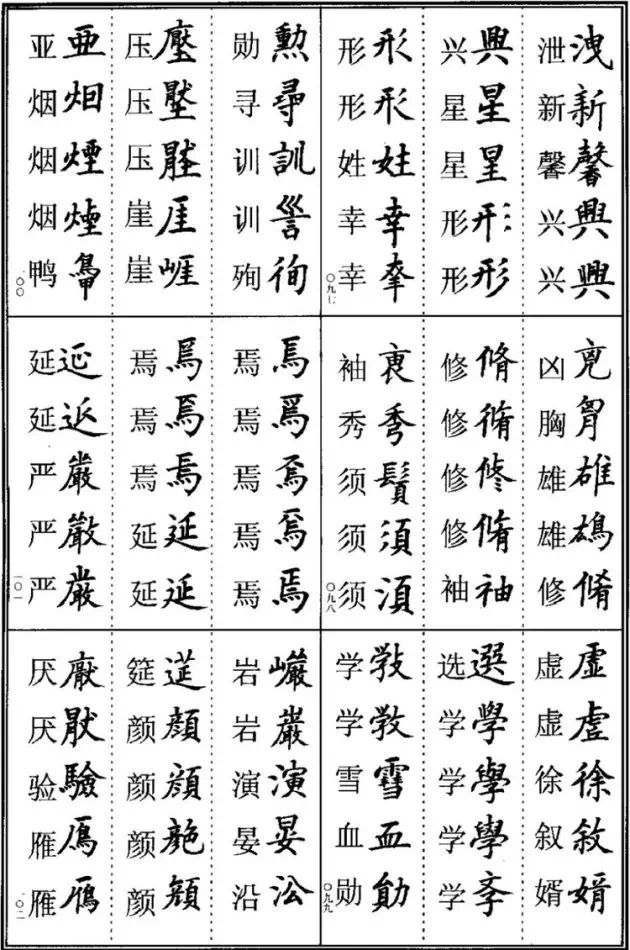 泄洩新新馨馨兴興兴興
兴興星星星星形形形形
形形形形姓姓幸幸幸
〇九七
凶兇胸胷雄雄雄鴆修脩
修脩修脩修修修脩袖袖
袖褎秀秀须鬚须須须湏
〇九八
虚虛虚虗徐徐叙敘婿婿
选選学學学學学學学斈
学斆学敩雪雪血血勋勛
〇九九
勋勳寻尋训訓训殉徇
压壓压压崖崖崖崕
亚亞烟烟烟煙烟煙鸭
一〇〇
焉焉焉焉焉焉焉焉焉焉
焉焉焉焉焉焉延延延延
延延延严嚴严嚴严嚴
一〇一
岩巖岩巖演演晏晏沿沿
筵筵颜顏颜顏颜颜顏
厌厭厌猒验驗雁鴈雁鴈
一〇二